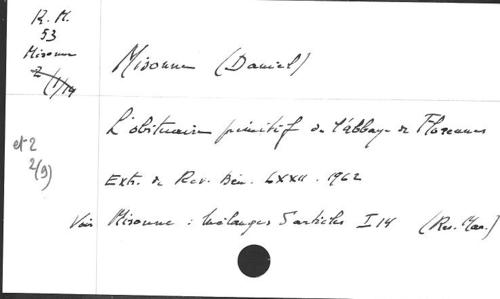 R. M.
53
Misonne
2 (1)14
Misonne (Daniel)
L'obituaire primitif de l'abbaye de Florennes
et 2
2(9)
Extr. de Rev. Bén. LXXII. 1962
Voir Misonne : Mélanges 5 articles I 14 (Res. Man.)